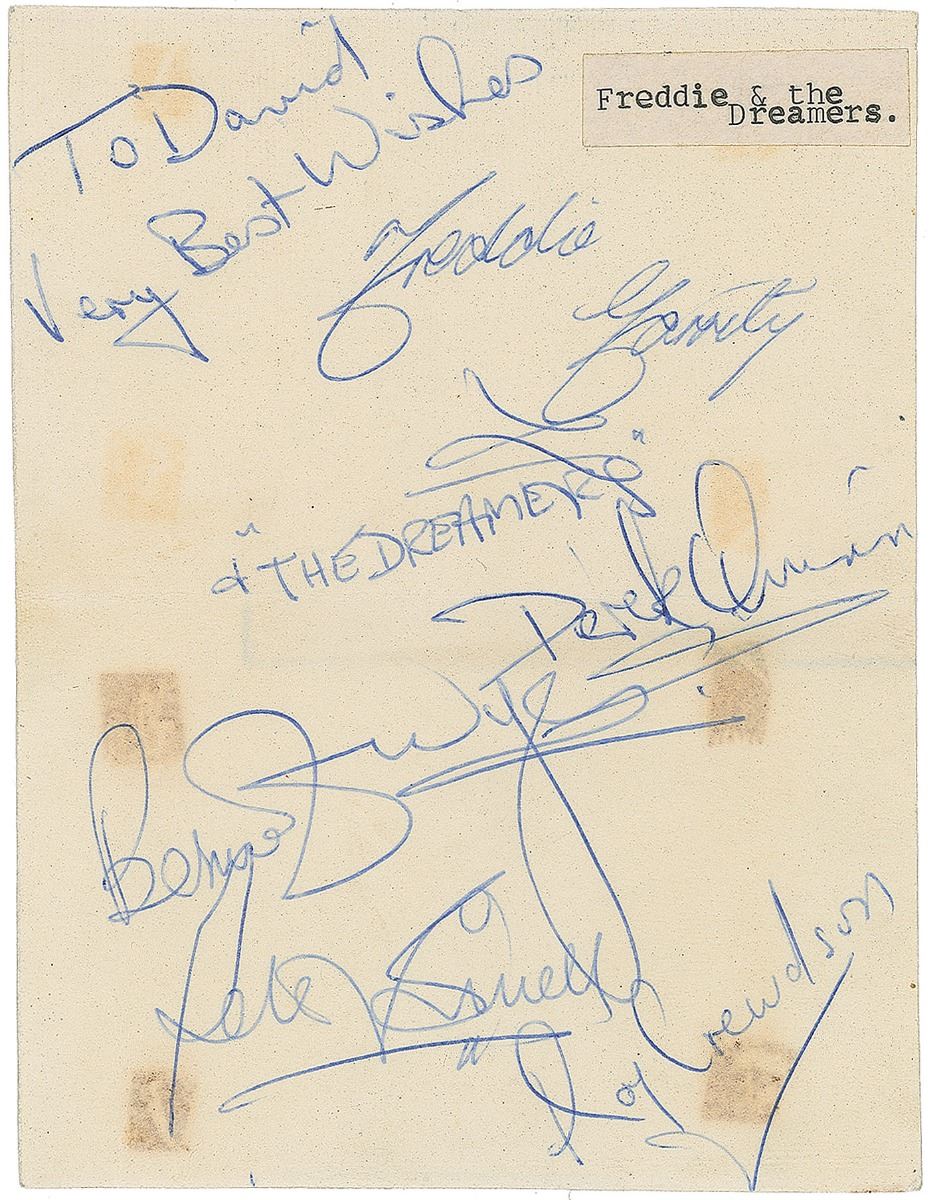 Freddie & the
Dreamers.
To David
Very Best Wishes
Freddie
Garrity
& "THE DREAMERS"
Derek Quinn
Bernie Dwyer
Pete Birrell
Roy Crewdson